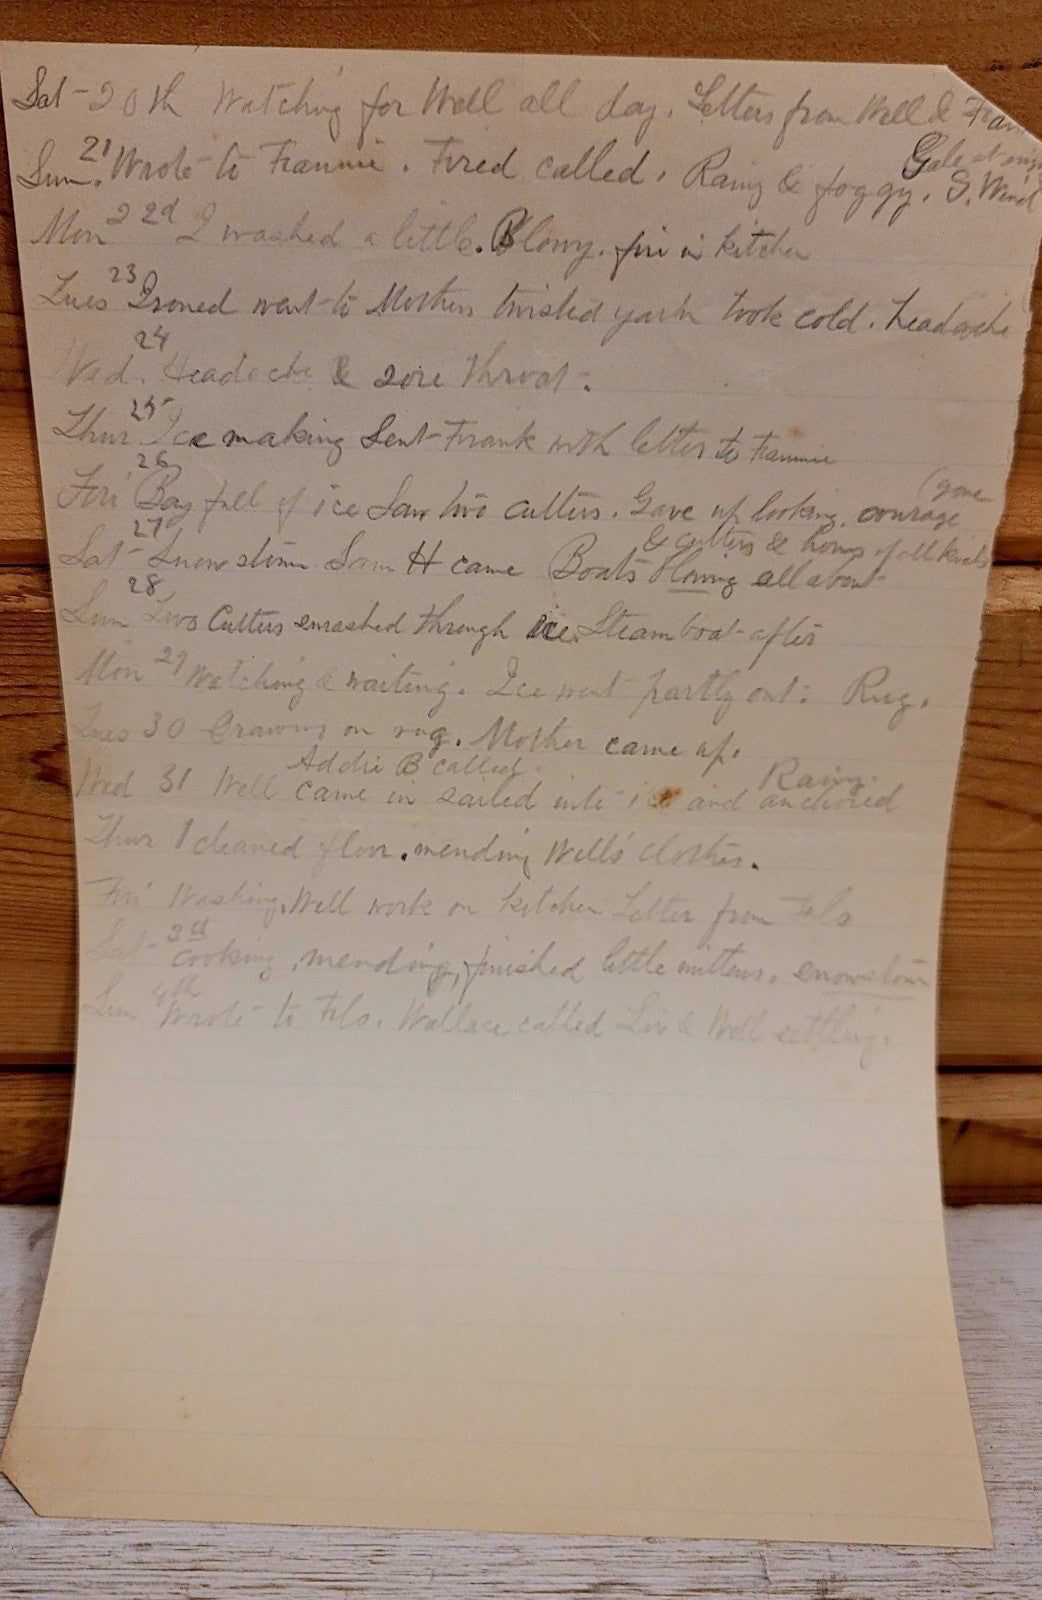 Sat - 20th Watching for Well all day. Letters from Well &
Gale at
Sun. 21 Wrote to Fannie. Fred called. Rainy & foggy. S. Wind
Mon 22d I washed a little. Blowy. fire in kitchen
Tues 23 Ironed went to Mothers twisted yarn took cold. headache
Wed. 24 Headache & sore throat.
Thur 25 Ice making Sent Frank with letter to Fannie
Fri 26 Bay full of ice Saw two cutters. Gave up looking. courage
(gone
& cutters & horns of all kinds
Sat 27 Snow storm Sam H came Boats blowing all about
Sun 28 Two Cutters smashed through ice Steamboat after
Mon 29 Watching & waiting. Ice went partly out. Rug.
Tues 30 Drawing on rug. Mother came up.
Addie B called Rainy.
Wed 31 Well came in sailed into ice and anchored
Thur 1 cleaned floor. mending Well's clothes.
Fri Washing. Well work on kitchen Letter from Flo
Sat 3rd cooking, mending, finished little mittens. snowstorm
Sun 4th Wrote to Flo. Wallace called Liv & Well settling.